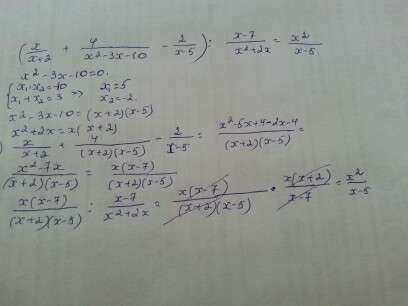 (x/(x+2) + 4/(x²-3x-10) - 2/(x-5)) : (x-7)/(x²+2x) = x²/(x-5)
x²-3x-10=0.
{x₁x₂=-10 x₁=5
{x₁+x₂=3 => x₂=-2.
x²-3x-10=(x+2)(x-5)
x²+2x=x(x+2)
) x/(x+2) + 4/((x+2)(x-5)) - 2/(x-5) = (x²-5x+4-2x-4)/((x+2)(x-5)) =
(x²-7x)/((x+2)(x-5)) = x(x-7)/((x+2)(x-5))
x(x-7)/((x+2)(x-5)) : (x-7)/(x²+2x) = x(x-7)/((x+2)(x-5)) · x(x+2)/(x-7) = x²/(x-5)